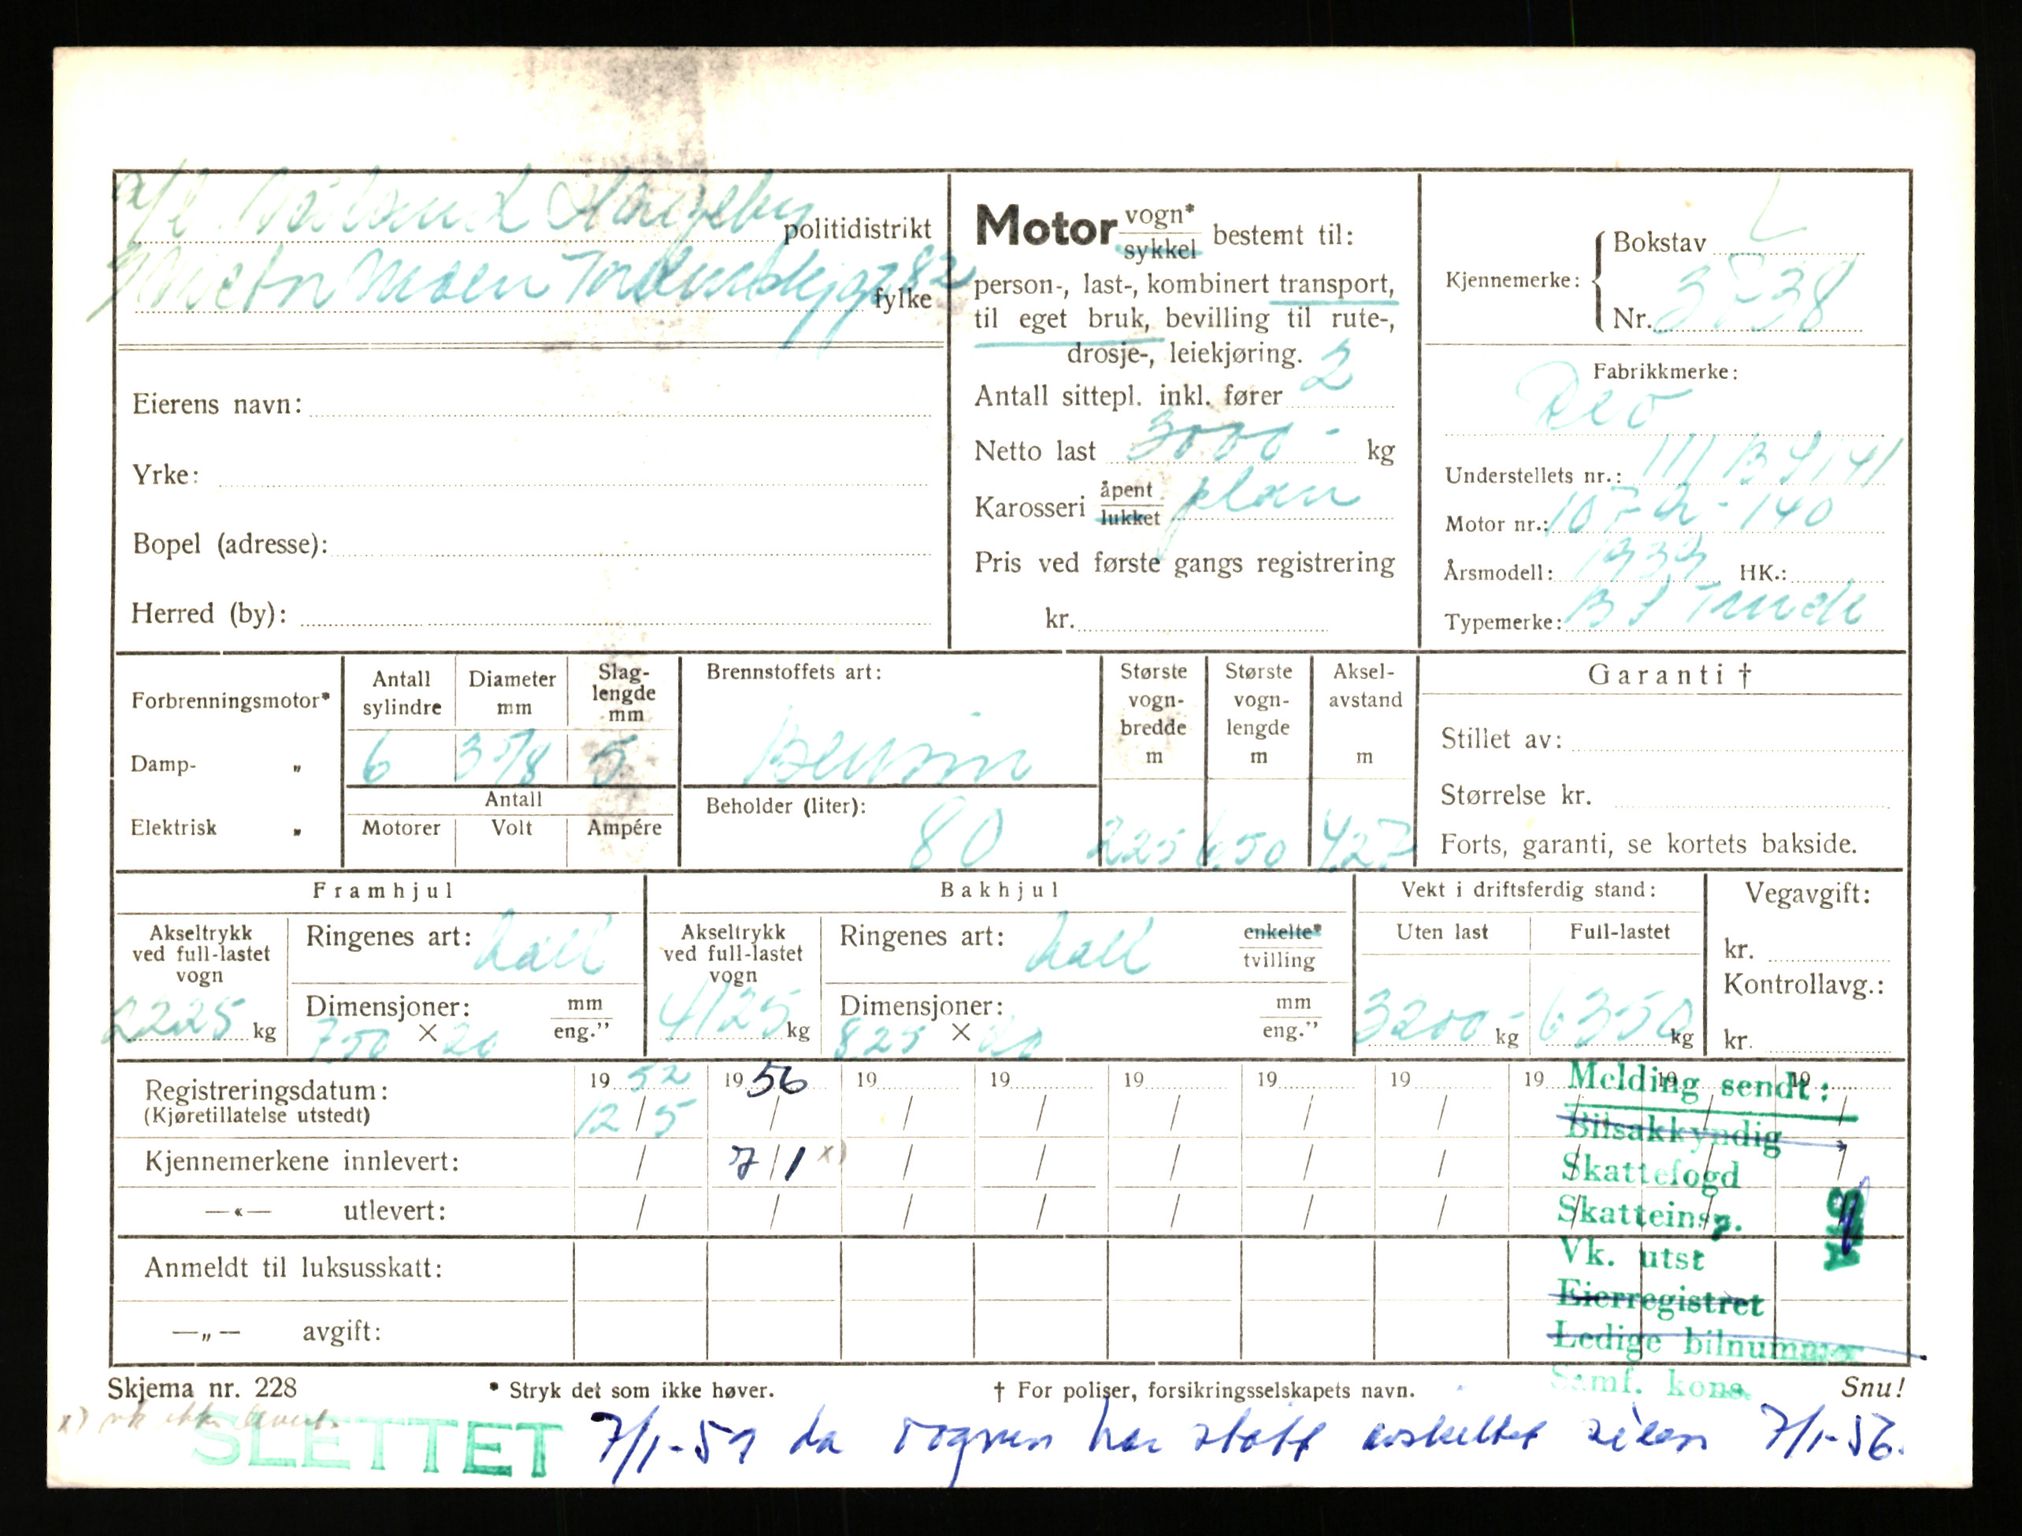 a/l Hageby politidistrikt
Moen 82 fylke
Eierens navn:
Yrke:
Bopel (adresse):
Herred (by):
Motor vogn* sykkel bestemt til:
person-, last-, kombinert transport,
til eget bruk, bevilling til rute-,
drosje-, leiekjøring.
Antall sittepl. inkl. fører 2
Netto last 3000- kg
Karosseri åpent lukket plan
Pris ved første gangs registrering
kr.
Kjennemerke: Bokstav L
Nr. 3738
Fabrikkmerke:
Reo
Understellets nr.:
Motor nr.:
Årsmodell: 1939 HK.:
Typemerke: Truck
Forbrenningsmotor*
Damp- „
Elektrisk „
Antall sylindre
Diameter mm
Slag-lengde mm
6 3 7/8 5
Antall
Motorer Volt Ampére
Brennstoffets art:
Bensin
Beholder (liter):
80
Største vogn-bredde m
Største vogn-lengde m
Aksel-avstand m
225 650 427
Garanti †
Stillet av:
Størrelse kr.
Forts, garanti, se kortets bakside.
Framhjul
Akseltrykk ved full-lastet vogn
2225 kg
Ringenes art: luft
Dimensjoner: mm
750 × 20 eng."
Bakhjul
Akseltrykk ved full-lastet vogn
4125 kg
Ringenes art: luft enkelte* tvilling
Dimensjoner: mm
825 × 20 eng."
Vekt i driftsferdig stand:
Uten last Full-lastet
3200- kg 6350 kg
Vegavgift:
kr.
Kontrollavg.:
kr.
Registreringsdatum: 19 52 19 56 19 19 19 19 19 19 19 19
(Kjøretillatelse utstedt) 12/5 / / / / / / / / /
Kjennemerkene innlevert: / 7/1 x) / / / / / / / /
—«— utlevert: / / / / / / / / /
Anmeldt til luksusskatt:
—„— avgift:
Melding sendt:
Bilsakkyndig
Skattefogd
Skatteinsp.
Vk. utst
Eierregistret
Ledige bilnummer
Samf. kons.
Skjema nr. 228
* Stryk det som ikke høver.
† For poliser, forsikringsselskapets navn.
Snu!
x) vk ikke levert.
SLETTET 7/1-59 da vognen har stått avskiltet siden 7/1-56.